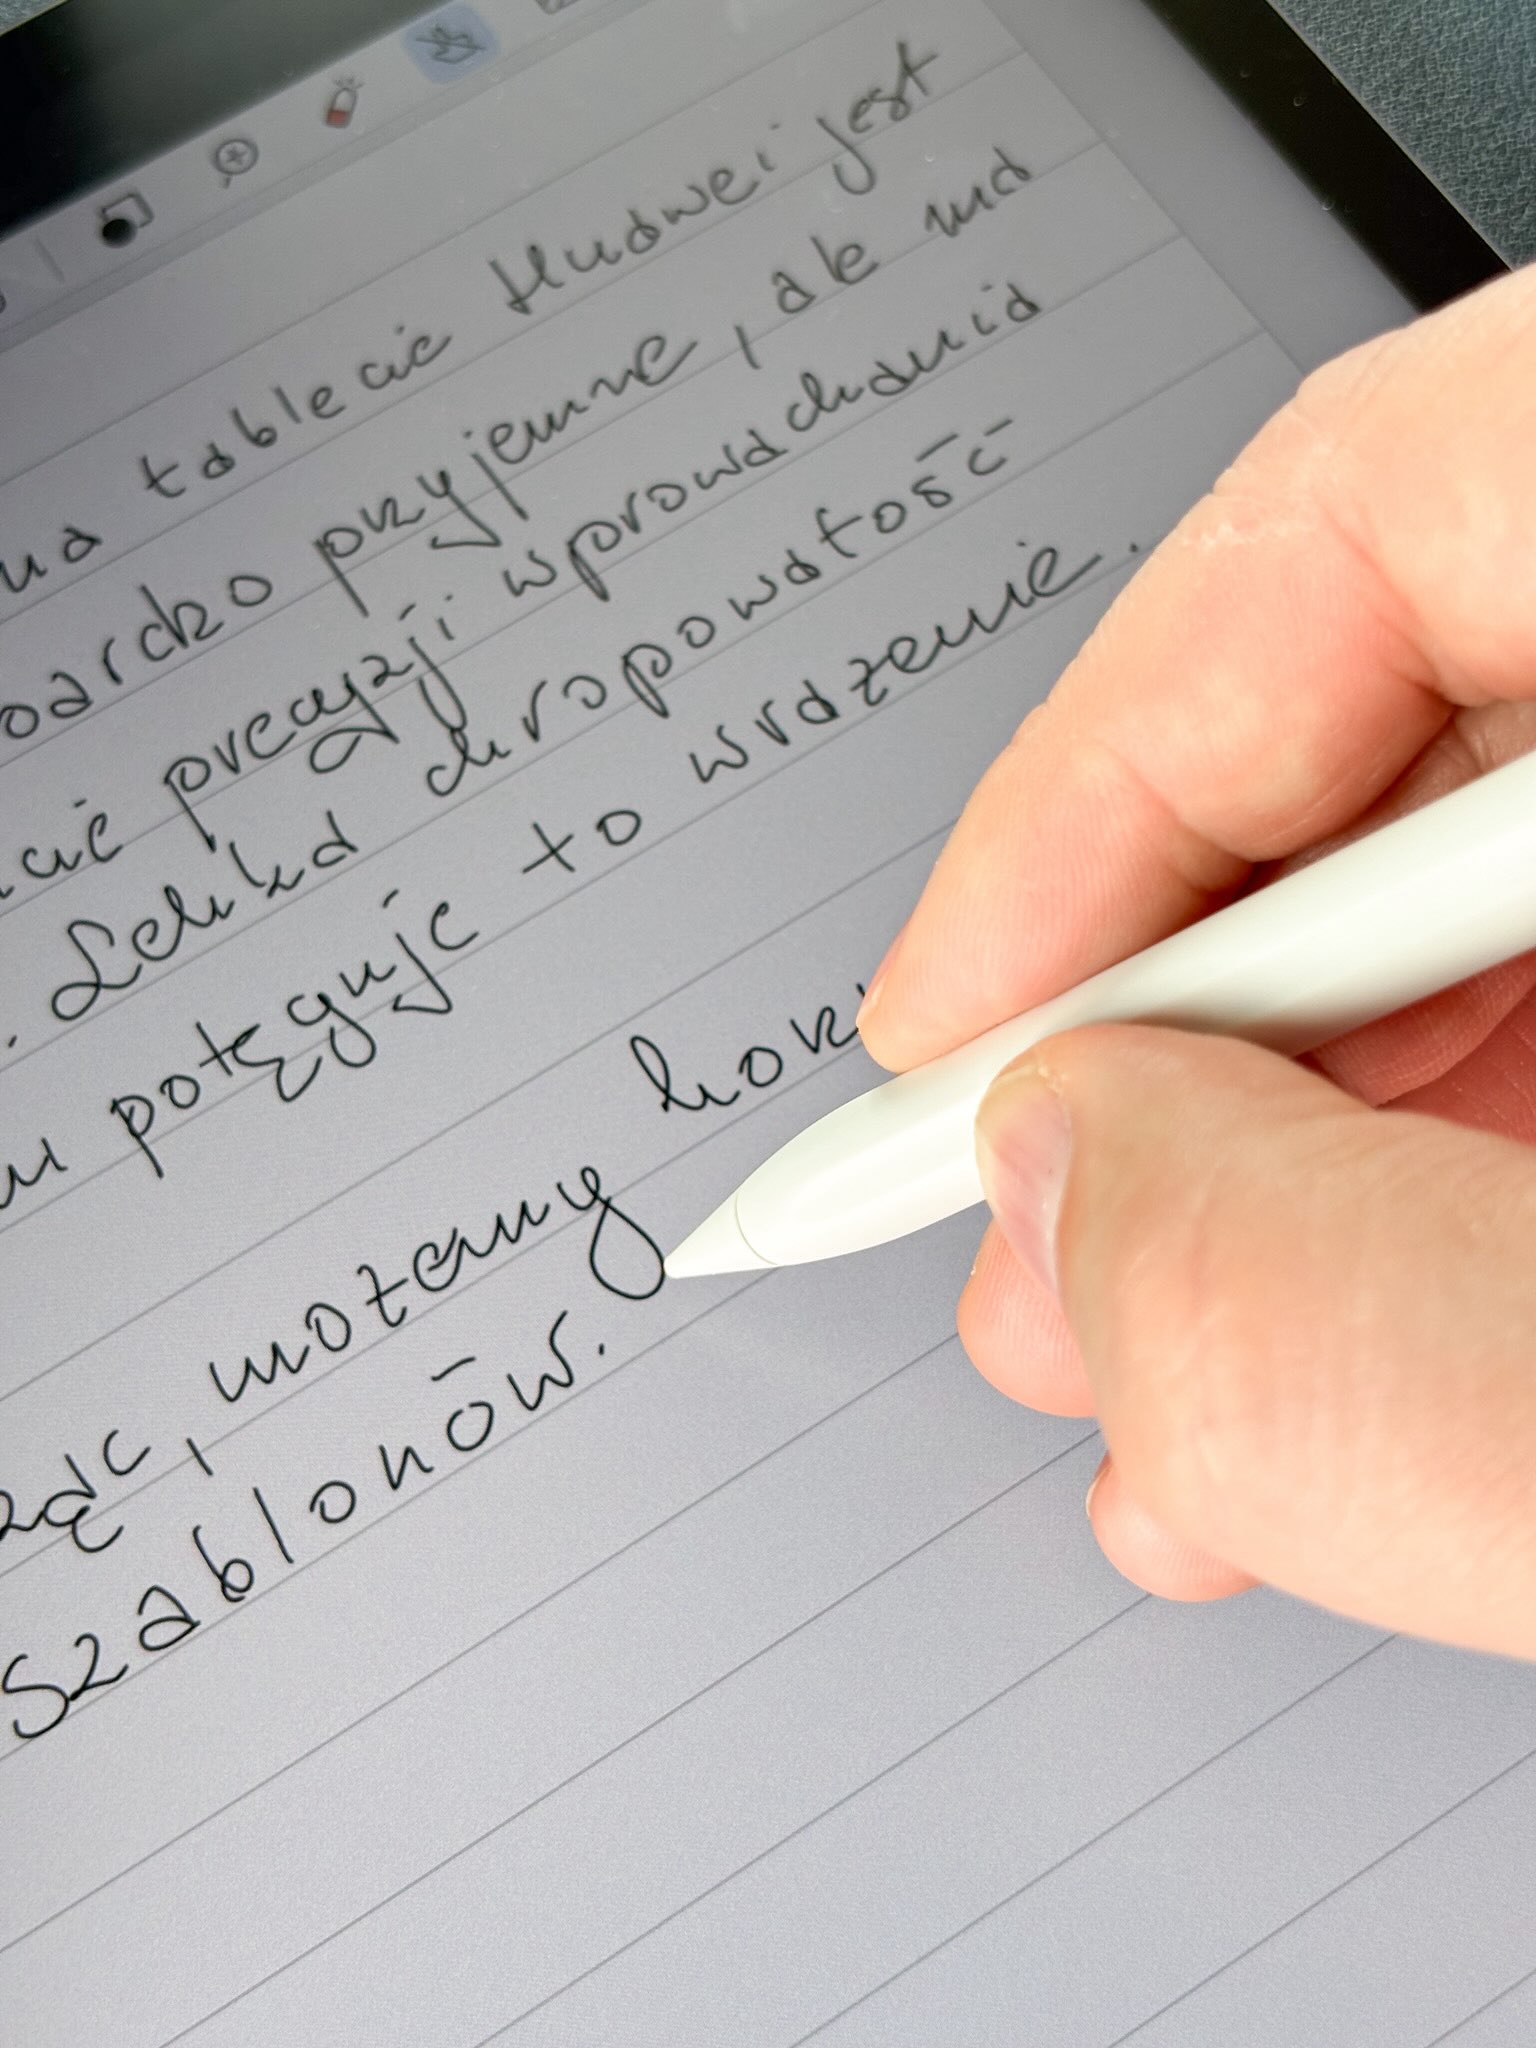 na tablecie Huawei jest
bardzo przyjemne, ale ma
precyzji wprowadzania
. Lekka chropowatość
potęguje to wrażenie.
, możemy
szablonów.